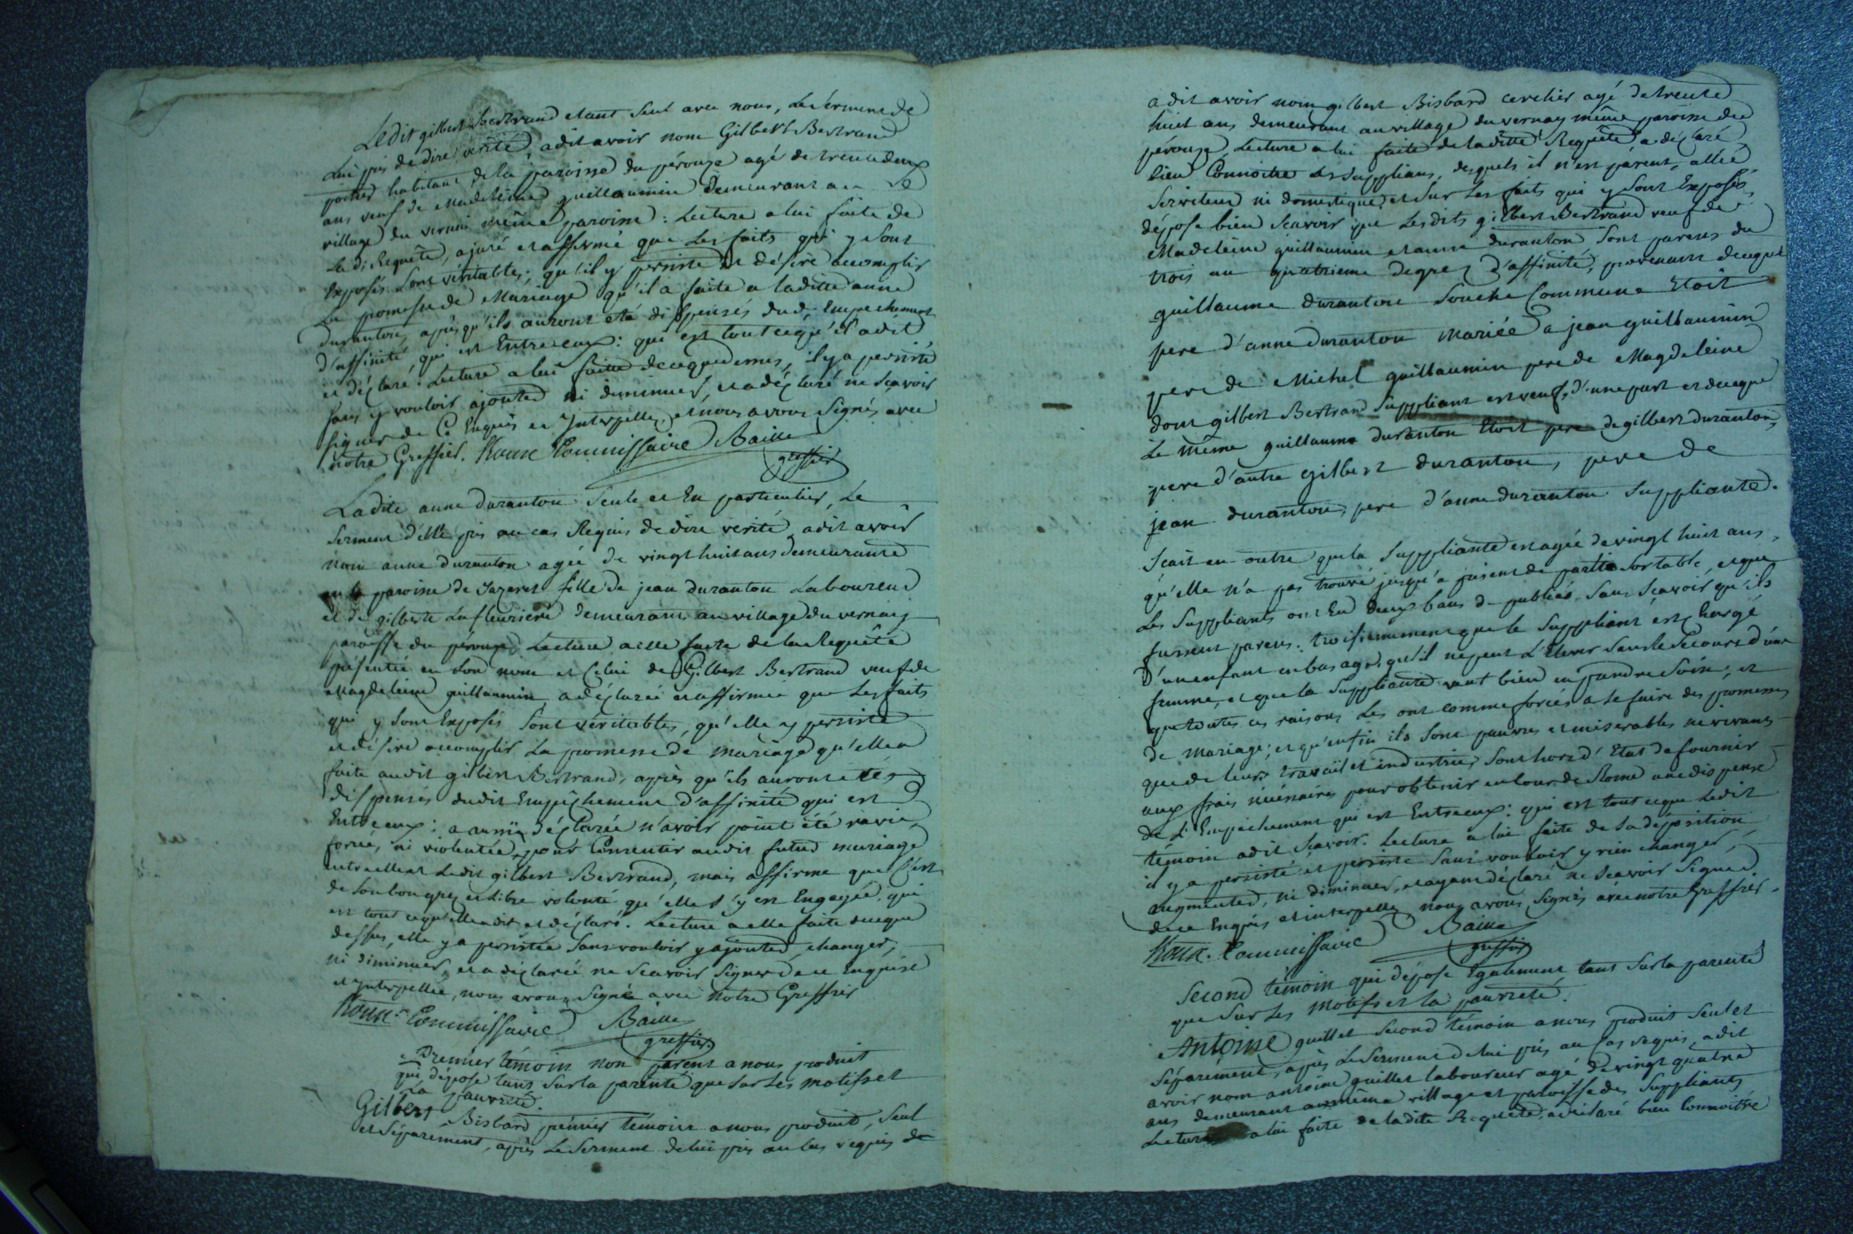 Ledit gilbert Bertrand etant seul avec nous, le serment de
Lui pris de dire verité, a dit avoir nom Gilbert Bertrand
potier habitant de la paroisse du pérouze agé de trente deux
ans veuf de Madeleine guillaumin demeurant au Le
village du vernai même paroisse : Lecture a lui faite de
La de Requête, a juré et affirmé que les faits qui y sont
exposés sont véritables, qu'il y persiste et désire accomplir
La promesse de Mariage qu'il a faite a laditte anne
duranton, après qu'ils auront eté dispensés dud. Empechement
d'affinité qui est Entre eux : qui est tout ce qu'il a dit
et déclaré. Lecture a lui faitte de ce que dessus, il y a persisté
sans y vouloir ajouter ni diminuer, et a déclaré ne sçavoir
signer de Ce Enquis et Interpellé, et nous avons signés avec
notre Greffier. Roux Commissaire Baille
greffier
Ladite anne duranton seule et En particulier, Le
serment d'elle pris au cas Requis de dire verité, a dit avoir
nom anne duranton agée de vingt huit ans demeurante
en la paroisse de Jazeret fille de jean duranton Laboureur
et de gilberte Lafleuriere demeurant au village du vernay
paroisse du pérouze. Lecture a elle faite de la Requête
présentée en son nom et Celui de Gilbert Bertrand veuf de
Magdeleine guillaumin a déclaré et affirmée que Les faits
qui y sont Exposés sont véritables, qu'elle y persiste
et désire accomplir La promesse de mariage qu'elle a
faite audit gilbert Bertrand, après qu'ils auront etés
dispensés dudit Empêchement d'affinité qui est
Entre eux : a aussi déclarée n'avoir point été ravie,
forcée, ni violentée, pour Consentir audit futur mariage
entre elle et Ledit gilbert Bertrand, mais affirme que C'est
de son bon gré et Libre volonté, qu'elle s'y est Engagée, qui
est tout ce qu'elle a dit et déclaré. Lecture a elle faite de ce que
dessus, elle y a persistée sans vouloir y ajouter, changer,
ni diminuer, et a déclarée ne sçavoir signer de ce Enquise
et Interpellée, nous avons signée avec notre Greffier
Roux Commissaire Baille
greffier.
Premier témoin non parent a nous produit
qui dépose tant sur la parenté que sur Les motifs et
La pauvreté.
Gilbert Bisbard prémier témoin a nous produit, seul
et séparement, après Le serment de lui pris au cas requis de
a dit avoir nom gilbert Bisbard cerclier agé de trente
huit ans demeurant au village du vernay même paroisse du
perouze, Lecture a lui faite de laditte Requête, a déclaré
bien Connoitre Les supplians, desquels il n'est parent, allié
serviteur ni domestique, et sur Les faits qui y sont Exposés,
dépose bien sçavoir que Lesdits gilbert Bertrand veuf de
Madeleine guillaumin et anne duranton sont parens du
trois au quatrieme degrez d'affinité, provenant de ce que
guillaume duranton souche Commune Etoit
pere d'anne duranton mariée a jean guillaumin
pere de Michel guillaumin pere de Magdeleine
dont gilbert Bertrand suppliant est veuf, d'une part et de ce que
Le même guillaume duranton Etoit pere de gilbert duranton,
pere d'autre gilbert duranton, pere de
jean duranton, pere d'anne duranton suppliante.
Scait en outre que la suppliante est agée de vingt huit ans,
qu'elle n'a pas trouvé jusqu'a présent de partie sortable, et que
Les Suppliants ont Eu deux bans de publiés sans sçavoir qu'ils
fussent parens. troisiemement que le Suppliant est Chargé
d'un enfant en bas age, qu'il ne peut L'elever sans le secours d'une
femme, et que la suppliante veut bien en prendre soin ; et
que toutes ces raisons les ont comme forcés a se faire des promesses
de mariage ; et qu'enfin ils sont pauvres et miserables ne vivans
que de leurs travail et industrie, sont hors d'Etat de fournir
aux frais nécessaires pour obtenir en Cour de Rome une dispense
de L'Empechement qui est Entre eux : qui est tout ce que Ledit
témoin a dit sçavoir. Lecture a lui faite de sa déposition,
il y a persisté et persiste sans vouloir y rien changer,
augmenter, ni diminuer, et ayant déclaré ne sçavoir signer
de ce Enquis et interpellé, nous avons signés avec notre Greffier.
Roux. Commissaire Baille
greffier
Second témoin qui dépose Egalement tant sur la parenté
que sur Les motifs et la pauvreté.
Antoine guillet second témoin a nous produit seul et
séparement, après Le serment de lui pris au cas requis, a dit
avoir nom antoine guillet laboureur agé de vingt quatre
ans demeurant au même village et paroisse des suppliants
Lecture a lui faite de ladite Requête, a déclaré bien Connoitre